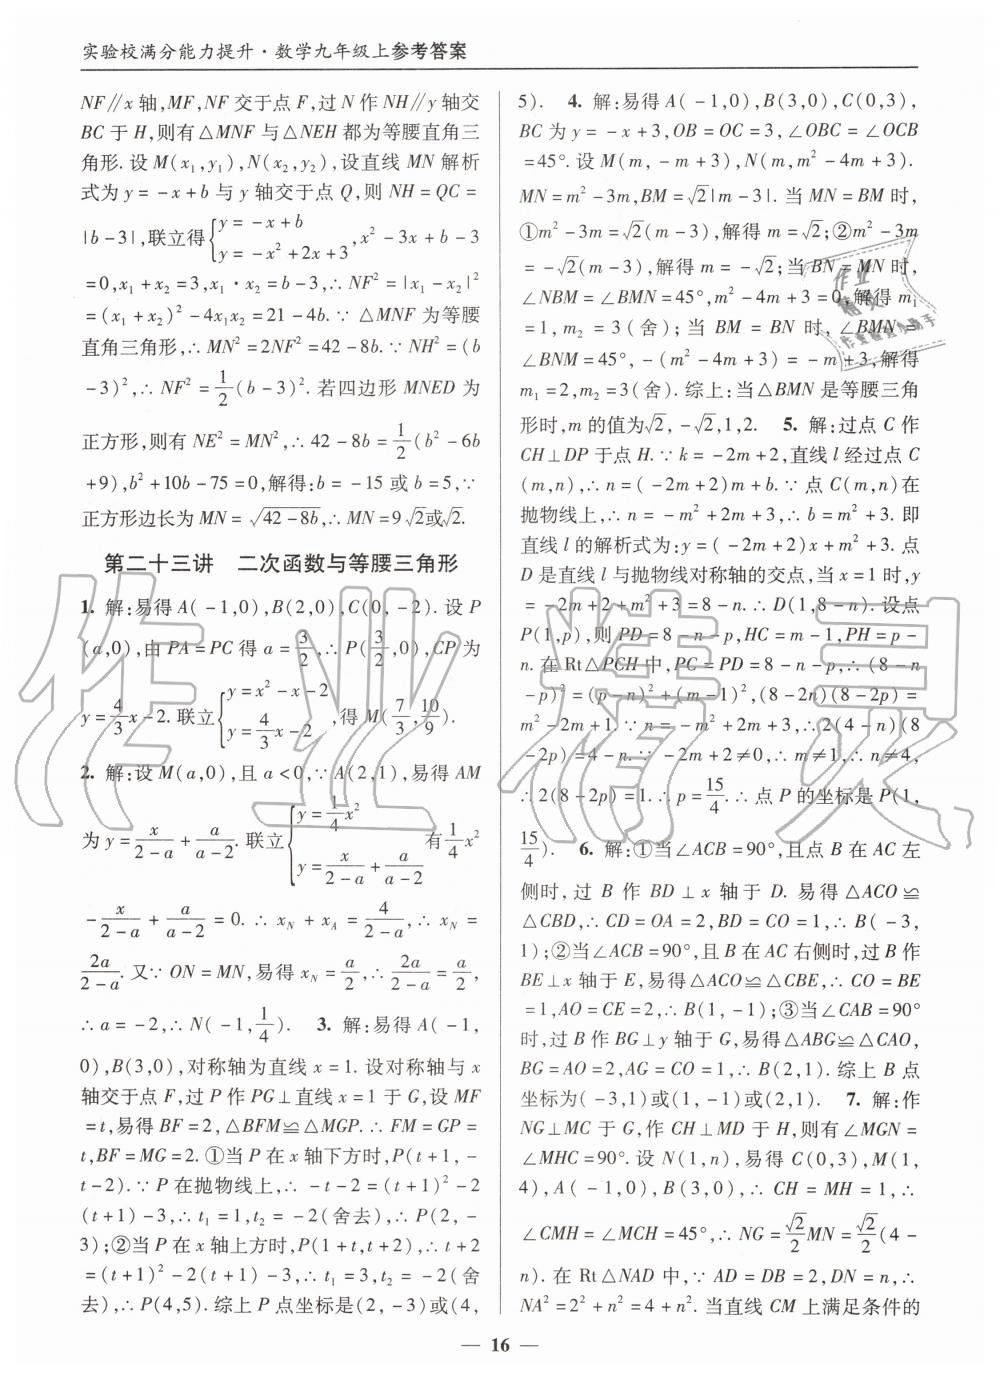 实验校满分能力提升·数学九年级上参考答案
NF∥x 轴,MF,NF 交于点 F,过 N 作 NH∥y 轴交
BC 于 H,则有△MNF 与△NEH 都为等腰直角三
角形. 设 M(x₁,y₁),N(x₂,y₂),设直线 MN 解析
式为 y=-x+b 与 y 轴交于点 Q,则 NH=QC=
|b-3|,联立得{y=-x+b y=-x²+2x+3,x²-3x+b-3
=0,x₁+x₂=3,x₁·x₂=b-3,∴NF²=|x₁-x₂|²
=(x₁+x₂)²-4x₁x₂=21-4b.∵△MNF 为等腰
直角三角形,∴MN²=2NF²=42-8b.∵NH²=(b
-3)²,∴NF²=1/2(b-3)². 若四边形 MNED 为
正方形,则有 NE²=MN²,∴42-8b=1/2(b²-6b
+9),b²+10b-75=0,解得:b=-15 或 b=5,∵
正方形边长为 MN=√(42-8b),∴MN=9√2或√2.
第二十三讲 二次函数与等腰三角形
1. 解:易得 A(-1,0),B(2,0),C(0,-2). 设 P
(a,0),由 PA=PC 得 a=3/2,∴P(3/2,0),CP 为
y=4/3x-2. 联立{y=x²-x-2 y=4/3x-2,得 M(7/3,10/9).
2. 解:设 M(a,0),且 a<0,∵A(2,1),易得 AM
为 y=x/(2-a)+a/(a-2). 联立{y=1/4x² y=x/(2-a)+a/(a-2) 有1/4x²
-x/(2-a)+a/(a-2)=0.∴x_N+x_A=4/(2-a),∴x_N=
2a/(2-a). 又∵ON=MN,易得 x_N=a/2,∴2a/(2-a)=a/2,
∴a=-2,∴N(-1,1/4). 3. 解:易得 A(-1,
0),B(3,0),对称轴为直线 x=1. 设对称轴与 x
轴交于点 F,过 P 作 PG⊥直线 x=1 于 G,设 MF
=t,易得 BF=2,△BFM≌△MGP.∴FM=GP=
t,BF=MG=2. ①当 P 在 x 轴下方时,P(t+1,-
t-2).∵P 在抛物线上,∴-t-2=(t+1)²-2
(t+1)-3,∴t₁=1,t₂=-2(舍去),∴P(2,-
3);②当 P 在 x 轴上方时,P(1+t,t+2),∴t+2
=(t+1)²-2(t+1)-3,∴t₁=3,t₂=-2(舍
去),∴P(4,5). 综上 P 点坐标是(2,-3)或(4,
5). 4. 解:易得 A(-1,0),B(3,0),C(0,3),
BC 为 y=-x+3,OB=OC=3,∠OBC=∠OCB
=45°. 设 M(m,-m+3),N(m,m²-4m+3).
MN=m²-3m,BM=√2|m-3|. 当 MN=BM 时,
①m²-3m=√2(m-3),解得 m=√2;②m²-3m
=-√2(m-3),解得 m=-√2;当 BN=MN 时,
∠NBM=∠BMN=45°,m²-4m+3=0,解得 m₁
=1,m₂=3(舍);当 BM=BN 时,∠BMN=
∠BNM=45°,-(m²-4m+3)=-m+3,解得
m₁=2,m₂=3(舍). 综上:当△BMN 是等腰三角
形时,m 的值为√2,-√2,1,2. 5. 解:过点 C 作
CH⊥DP 于点 H.∵k=-2m+2,直线 l 经过点 C
(m,n),∴n=(-2m+2)m+b.∵点 C(m,n)在
抛物线上,∴n=-m²+2m+3,∴b=m²+3. 即
直线 l 的解析式为:y=(-2m+2)x+m²+3. 点
D 是直线 l 与抛物线对称轴的交点,当 x=1 时,y
=-2m+2+m²+3=8-n.∴D(1,8-n). 设点
P(1,p),则 PD=8-n-p,HC=m-1,PH=p-
n. 在 Rt△PCH 中,PC=PD=8-n-p,∴(8-n
-p)²=(p-n)²+(m-1)²,(8-2n)(8-2p)=
m²-2m+1.∵n=-m²+2m+3,∴2(4-n)(8
-2p)=4-n.∵-2m+2≠0,∴m≠1,∴n≠4,
∴2(8-2p)=1.∴p=15/4.∴点 P 的坐标是 P(1,
15/4). 6. 解:①当∠ACB=90°,且点 B 在 AC 左
侧时,过 B 作 BD⊥x 轴于 D. 易得△ACO≌
△CBD,∴CD=OA=2,BD=CO=1,∴B(-3,
1);②当∠ACB=90°,且 B 在 AC 右侧时,过 B 作
BE⊥x 轴于 E,易得△ACO≌△CBE,∴CO=BE
=1,AO=CE=2,∴B(1,-1);③当∠CAB=90°
时,过 B 作 BG⊥y 轴于 G,易得△ABG≌△CAO,
BG=AO=2,AG=CO=1,∴B(2,1). 综上 B 点
坐标为(-3,1)或(1,-1)或(2,1). 7. 解:作
NG⊥MC 于 G,作 CH⊥MD 于 H,则有∠MGN=
∠MHC=90°. 设 N(1,n),易得 C(0,3),M(1,
4),A(-1,0),B(3,0),∴CH=MH=1,∴
∠CMH=∠MCH=45°,∴NG=√2/2MN=√2/2(4-
n). 在 Rt△NAD 中,∵AD=DB=2,DN=n,∴
NA²=2²+n²=4+n². 当直线 CM 上满足条件的
— 16 —
作业精灵
作业
精灵